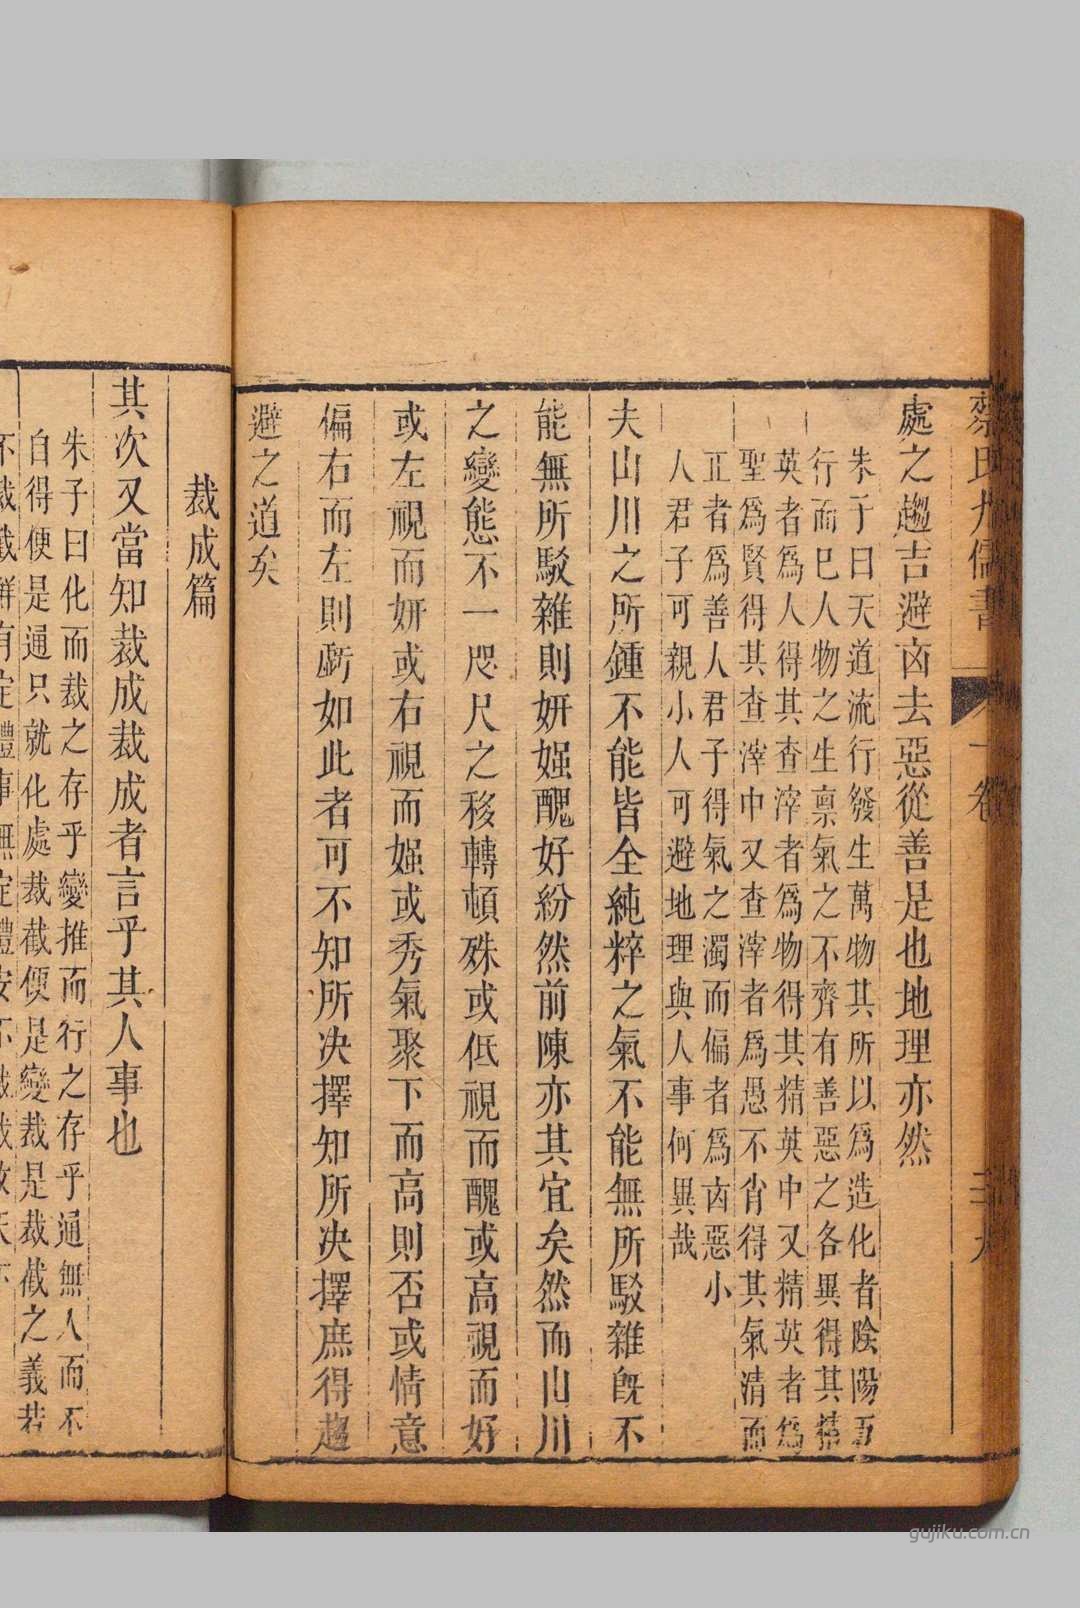 蔡氏九儒書
一卷
處之趨吉避凶去惡從善是也地理亦然
朱子曰天道流行發生萬物其所以爲造化者陰陽五
行而已人物之生禀氣之不齊有善惡之各異得其精
英者爲人得其查滓者爲物得其精英中又精英者爲
聖爲賢得其查滓中又查滓者爲愚不肖得其氣清而
正者爲善人君子得氣之濁而偏者爲凶惡小
人君子可親小人可避地理與人事何異哉
夫山川之所鍾不能皆全純粹之氣不能無所駁雜旣不
能無所駁雜則妍媸醜好紛然前陳亦其宜矣然而山川
之變態不一咫尺之移轉頓殊或低視而醜或高視而好
或左視而妍或右視而媸或秀氣聚下而高則否或情意
偏右而左則虧如此者可不知所决擇知所决擇庶得趨
避之道矣
裁成篇
其次又當知裁成裁成者言乎其人事也
朱子曰化而裁之存乎變推而行之存乎通無人而不
自得便是通只就化處裁截便是變裁是裁截之義若